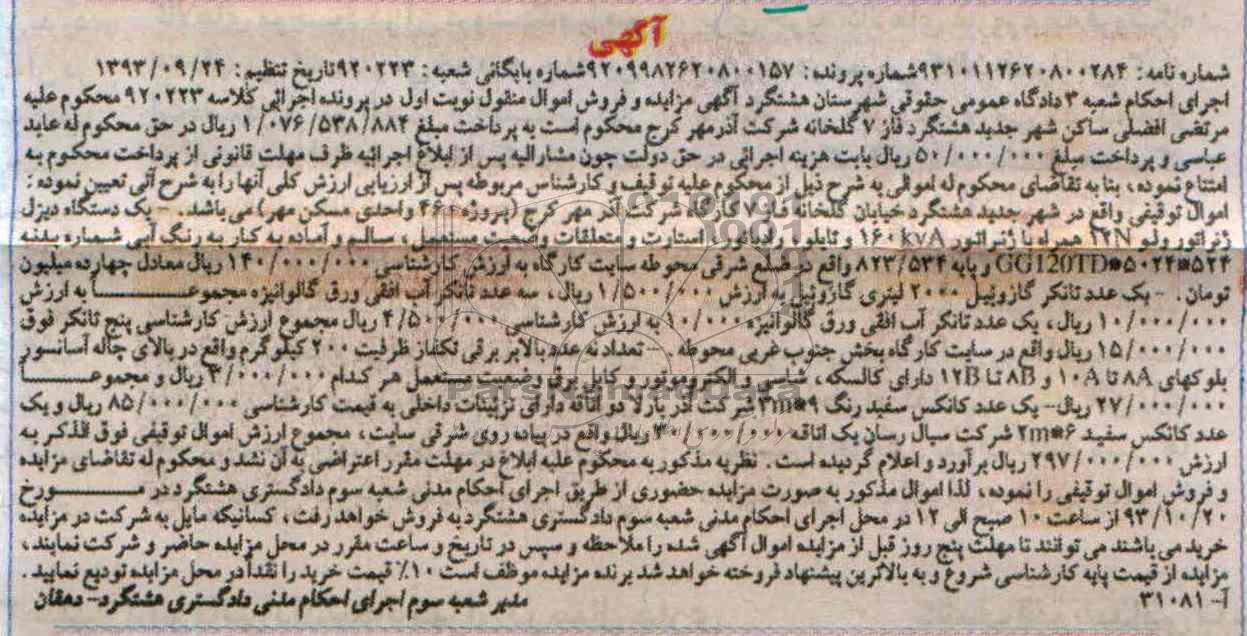 آگهی
شماره نامه: ۹۳۱۰۱۱۲۶۲۰۸۰۰۲۸۴شماره پرونده: ۹۲۰۹۹۸۲۶۲۰۸۰۰۱۵۷شماره بایگانی شعبه: ۹۲۰۲۲۳تاریخ تنظیم: ۱۳۹۳/۰۹/۲۴
اجرای احکام شعبه ۳ دادگاه عمومی حقوقی شهرستان هشتگرد آگهی مزایده و فروش اموال منقول نوبت اول در پرونده اجرائی کلاسه ۹۲۰۲۲۳ محکوم علیه
مرتضی افضلی ساکن شهر جدید هشتگرد فاز ۷ گلخانه شرکت آذرمهر کرج محکوم است به پرداخت مبلغ ۱/۰۷۶/۵۳۸/۸۸۴ ریال در حق محکوم له عابد
عباسی و پرداخت مبلغ ۵۰/۰۰۰/۰۰۰ ریال بابت هزینه اجرائی در حق دولت چون مشارالیه پس از ابلاغ اجرائیه ظرف مهلت قانونی از پرداخت محکوم به
امتناع نموده، بنا به تقاضای محکوم له اموالی به شرح ذیل از محکوم علیه توقیف و کارشناس مربوطه پس از ارزیابی ارزش کلی آنها را به شرح آتی تعیین نموده:
اموال توقیفی واقع در شهر جدید هشتگرد خیابان گلخانه فاز ۷ کارگاه شرکت آذر مهر کرج (پروژه ۴۶۰ واحدی مسکن مهر) می‌باشد. - یک دستگاه دیزل
ژنراتور ولو ۱۲N همراه با ژنراتور ۱۶۰kvA و تابلو، رادیاتور، استارت و متعلقات وضعیت مستعمل، سالم و آماده به کار به رنگ آبی شماره بدنه
۵۲۴*۵۰۲۴*GG120TD و پایه ۸۲۳/۵۳۴ واقع در ضلع شرقی محوطه سایت کارگاه به ارزش کارشناسی ۱۴۰/۰۰۰/۰۰۰ ریال معادل چهارده میلیون
تومان. - یک عدد تانکر گازوئیل ۲۰۰۰ لیتری گازوئیل به ارزش ۱/۵۰۰/۰۰۰ ریال، سه عدد تانکر آب افقی ورق گالوانیزه مجموعاً به ارزش
۱۰/۰۰۰/۰۰۰ ریال، یک عدد تانکر آب افقی ورق گالوانیزه ۱۰/۰۰۰ به ارزش کارشناسی ۴/۵۰۰/۰۰۰ ریال مجموع ارزش کارشناسی پنج تانکر فوق
۱۵/۰۰۰/۰۰۰ ریال واقع در سایت کارگاه بخش جنوب غربی محوطه. - تعداد نه عدد بالابر برقی تکفاز ظرفیت ۲۰۰ کیلوگرم واقع در بالای چاله آسانسور
بلوکهای ۸A تا ۱۰A و ۸B تا ۱۲B دارای کالسکه، شاسی و الکتروموتور و کابل برق وضعیت مستعمل هر کدام ۳/۰۰۰/۰۰۰ ریال و مجموعاً
۲۷/۰۰۰/۰۰۰ ریال- یک عدد کانکس سفید رنگ ۹*۳m شرکت آذر پارلا دو اتاقه دارای تزئینات داخلی به قیمت کارشناسی ۸۵/۰۰۰/۰۰۰ ریال و یک
عدد کانکس سفید ۶*۲m شرکت سیال رسان یک اتاقه ۳۰/۰۰۰/۰۰۰ ریال واقع در پیاده روی شرقی سایت، مجموع ارزش اموال توقیفی فوق الذکر به
ارزش ۲۹۷/۰۰۰/۰۰۰ ریال برآورد و اعلام گردیده است. نظریه مذکور به محکوم علیه ابلاغ در مهلت مقرر اعتراضی به آن نشد و محکوم له تقاضای مزایده
و فروش اموال توقیفی را نموده، لذا اموال مذکور به صورت مزایده حضوری از طریق اجرای احکام مدنی شعبه سوم دادگستری هشتگرد در مورخ
۹۳/۱۰/۲۰ از ساعت ۱۰ صبح الی ۱۲ در محل اجرای احکام مدنی شعبه سوم دادگستری هشتگرد به فروش خواهد رفت، کسانیکه مایل به شرکت در مزایده
خرید می باشند می توانند تا مهلت پنج روز قبل از مزایده اموال آگهی شده را ملاحظه و سپس در تاریخ و ساعت مقرر در محل مزایده حاضر و شرکت نمایند،
مزایده از قیمت پایه کارشناسی شروع و به بالاترین پیشنهاد فروخته خواهد شد برنده مزایده موظف است ۱۰٪ قیمت خرید را نقداً در محل مزایده تودیع نمایید.
آ- ۳۱۰۸۱
مدیر شعبه سوم اجرای احکام مدنی دادگستری هشتگرد- دهقان